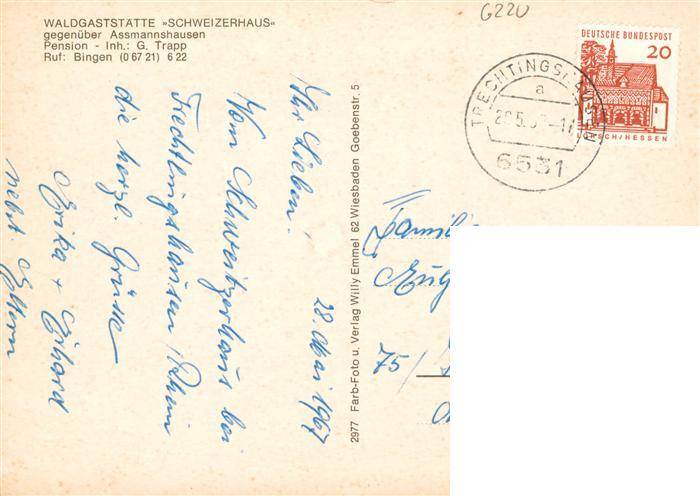 WALDGASTSTÄTTE »SCHWEIZERHAUS«
gegenüber Assmannshausen
Pension - Inh.: G. Trapp
Ruf: Bingen (0 67 21) 6 22
G220
DEUTSCHE BUNDESPOST
20
LORSCH/HESSEN
TRECHTINGSHAUSEN
a
28.5.67-11
6531
28. Mai 1967
Ihr Lieben!
Vom Schweitzerhaus bei
Trechtingshausen/Rhein
die herzl. Grüsse
Erika + Erhard
nebst Eltern
2977 Farb-Foto u. Verlag Willy Emmel 62 Wiesbaden Goebenstr. 5
Famili
Aug
75/